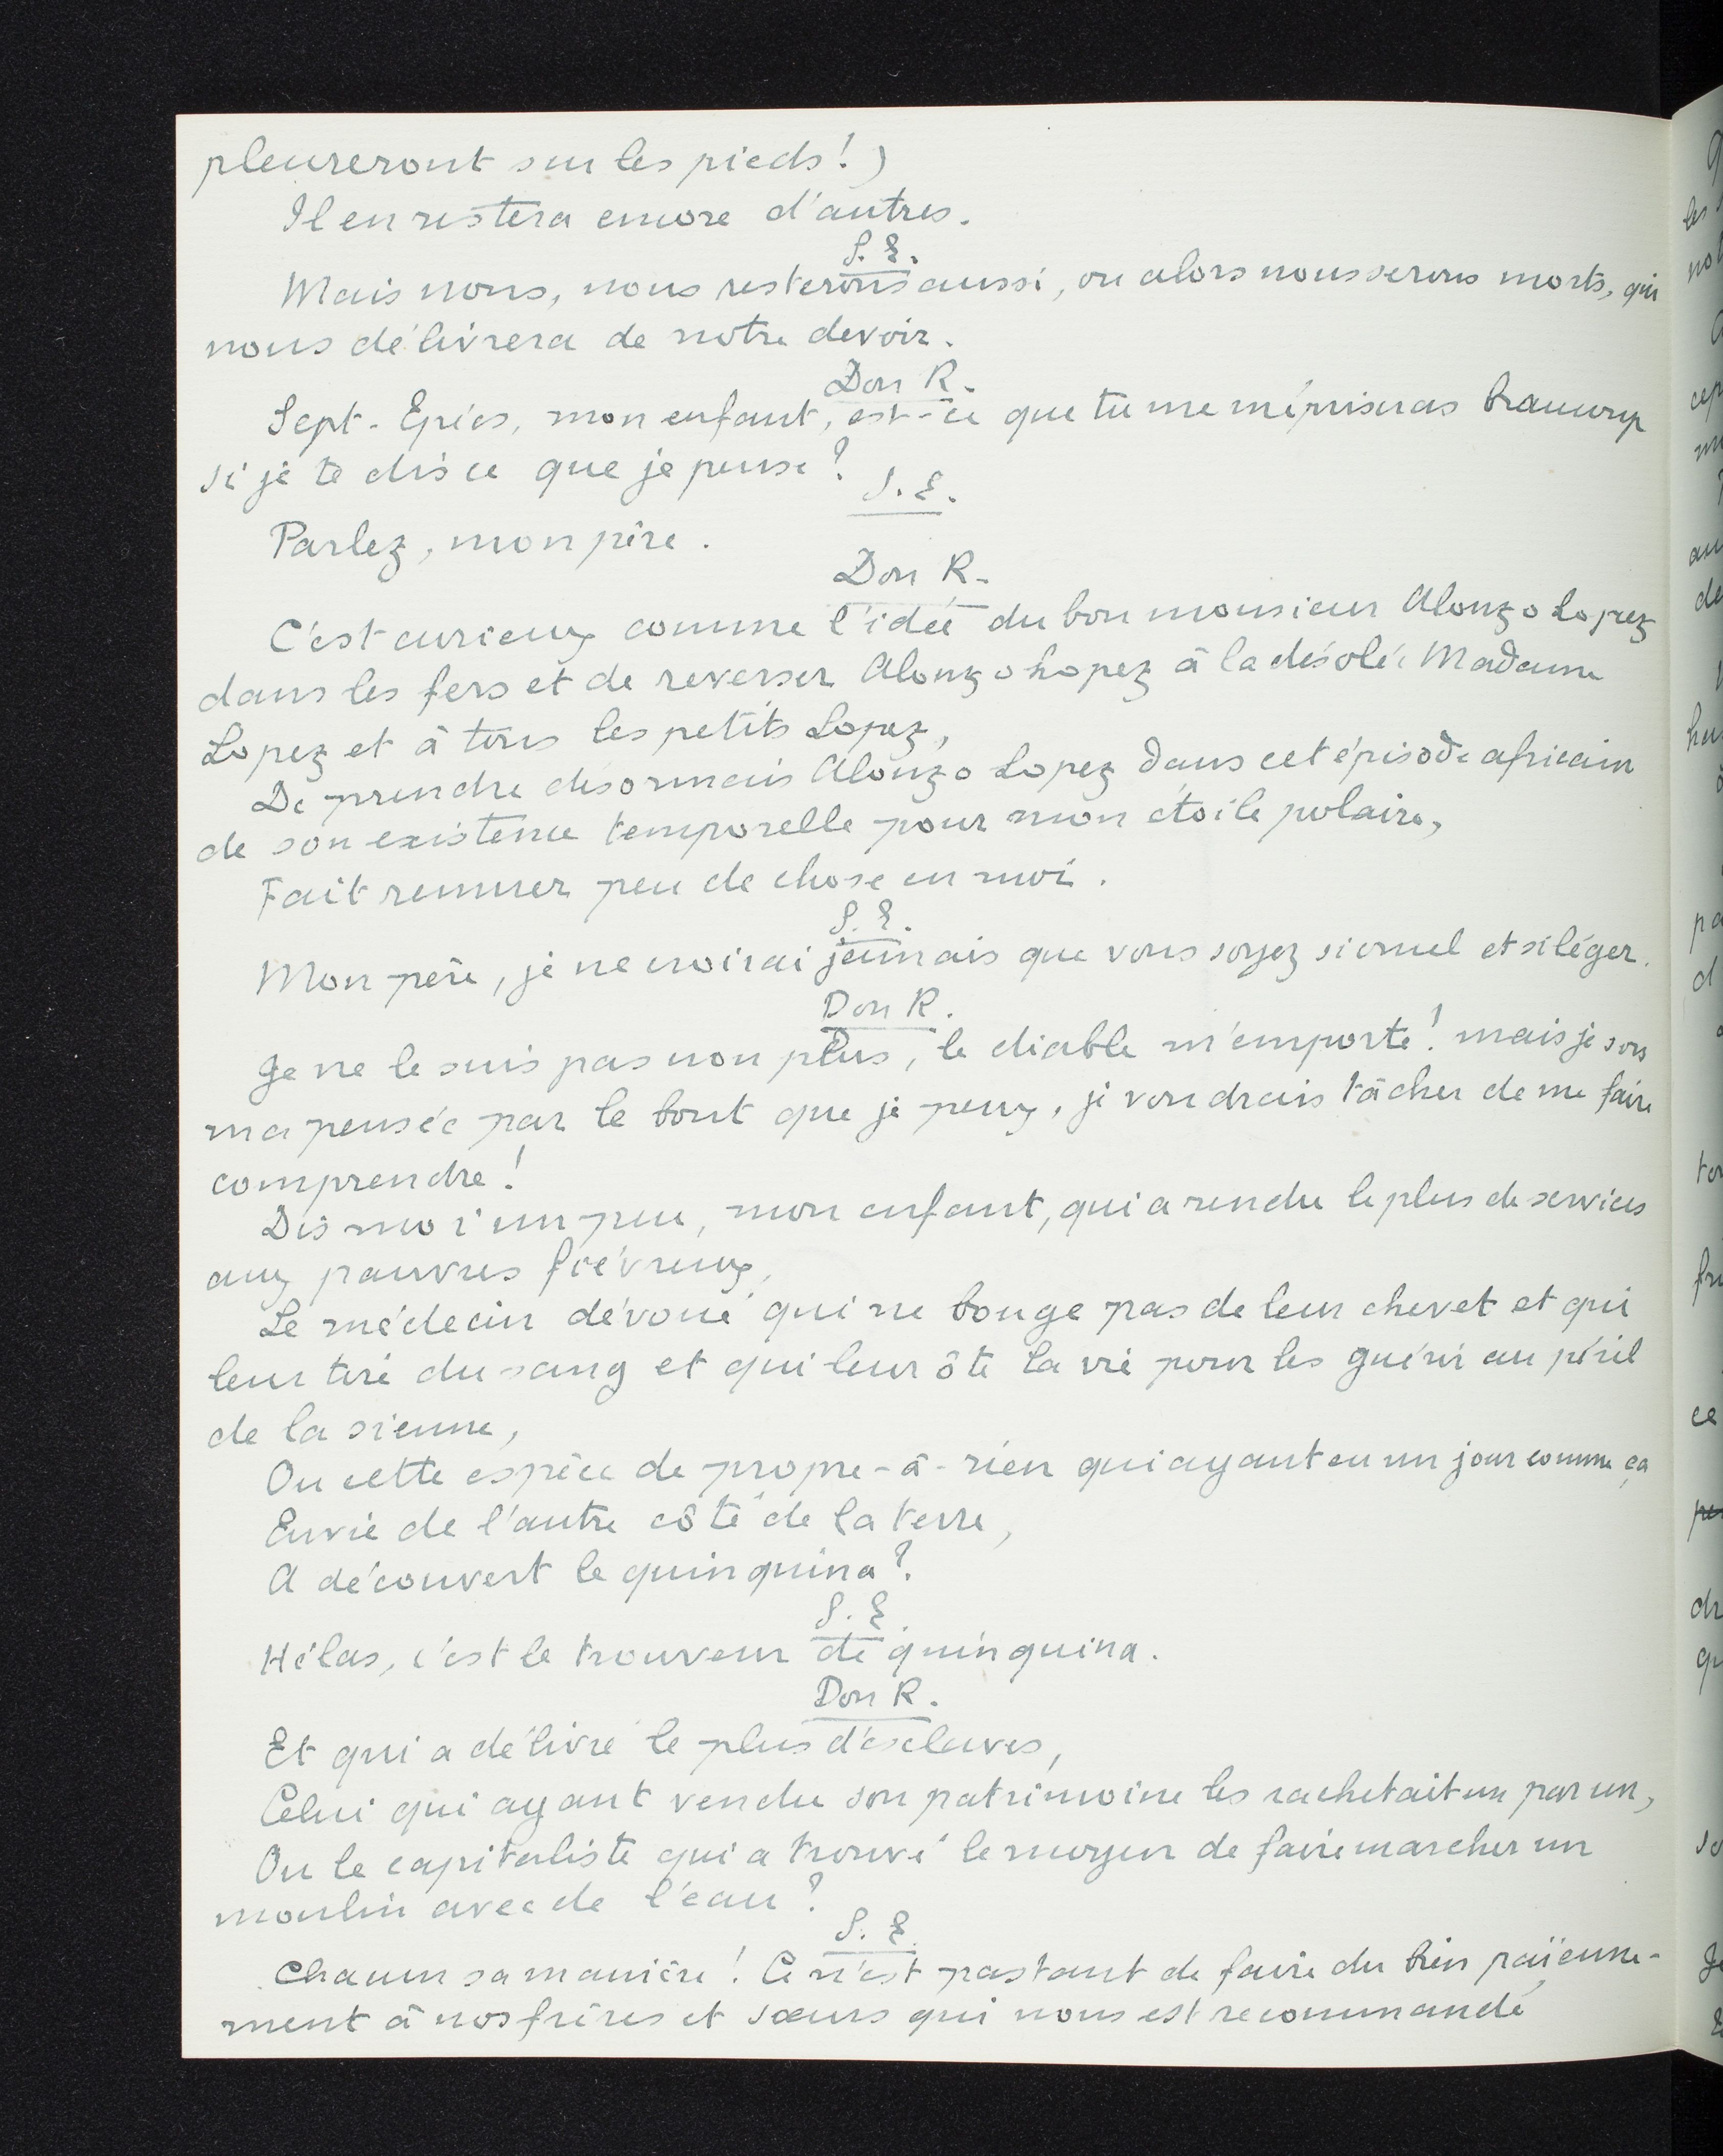 pleureront sur les pieds!)
Il en restera encore d'autres.
S. E.
Mais nous, nous resterons aussi, ou alors nous serons morts, qui
nous délivrera de notre devoir.
Don R.
Sept-Epées, mon enfant, est-ce que tu me mépriseras beaucoup
si je te dis ce que je pense?
S. E.
Parlez, mon père.
Don R.
C'est curieux comme l'idée du bon monsieur Alonzo Lopez
dans les fers et de reverser Alonzo Lopez à la désolée Madame
Lopez et à tous les petits Lopez,
De prendre désormais Alonzo Lopez dans cet épisode africain
de son existence temporelle pour mon étoile polaire,
Fait remuer peu de chose en moi.
S. E.
Mon père, je ne croirai jamais que vous soyez si cruel et si léger.
Don R.
Je ne le suis pas non plus, le diable m'emporte! mais je sors
ma pensée par le bout que je peux, je voudrais tâcher de me faire
comprendre!
Dis moi un peu, mon enfant, qui a rendu le plus de services
aux pauvres fiévreux,
Le médecin dévoué qui ne bouge pas de leur chevet et qui
leur tire du sang et qui leur ôte la vie pour les guérir au péril
de la sienne,
Ou cette espèce de propre-à-rien qui ayant eu un jour comme ça
Envie de l'autre côté de la terre,
A découvert le quinquina?
S. E.
Hélas, c'est le trouveur de quinquina.
Don R.
Et qui a délivré le plus d'esclaves,
Celui qui ayant vendu son patrimoine les rachetait un par un,
Ou le capitaliste qui a trouvé le moyen de faire marcher un
moulin avec de l'eau?
S. E.
Chacun sa manière! Ce n'est pas tant de faire du bien païenne-
ment à nos frères et sœurs qui nous est recommandé